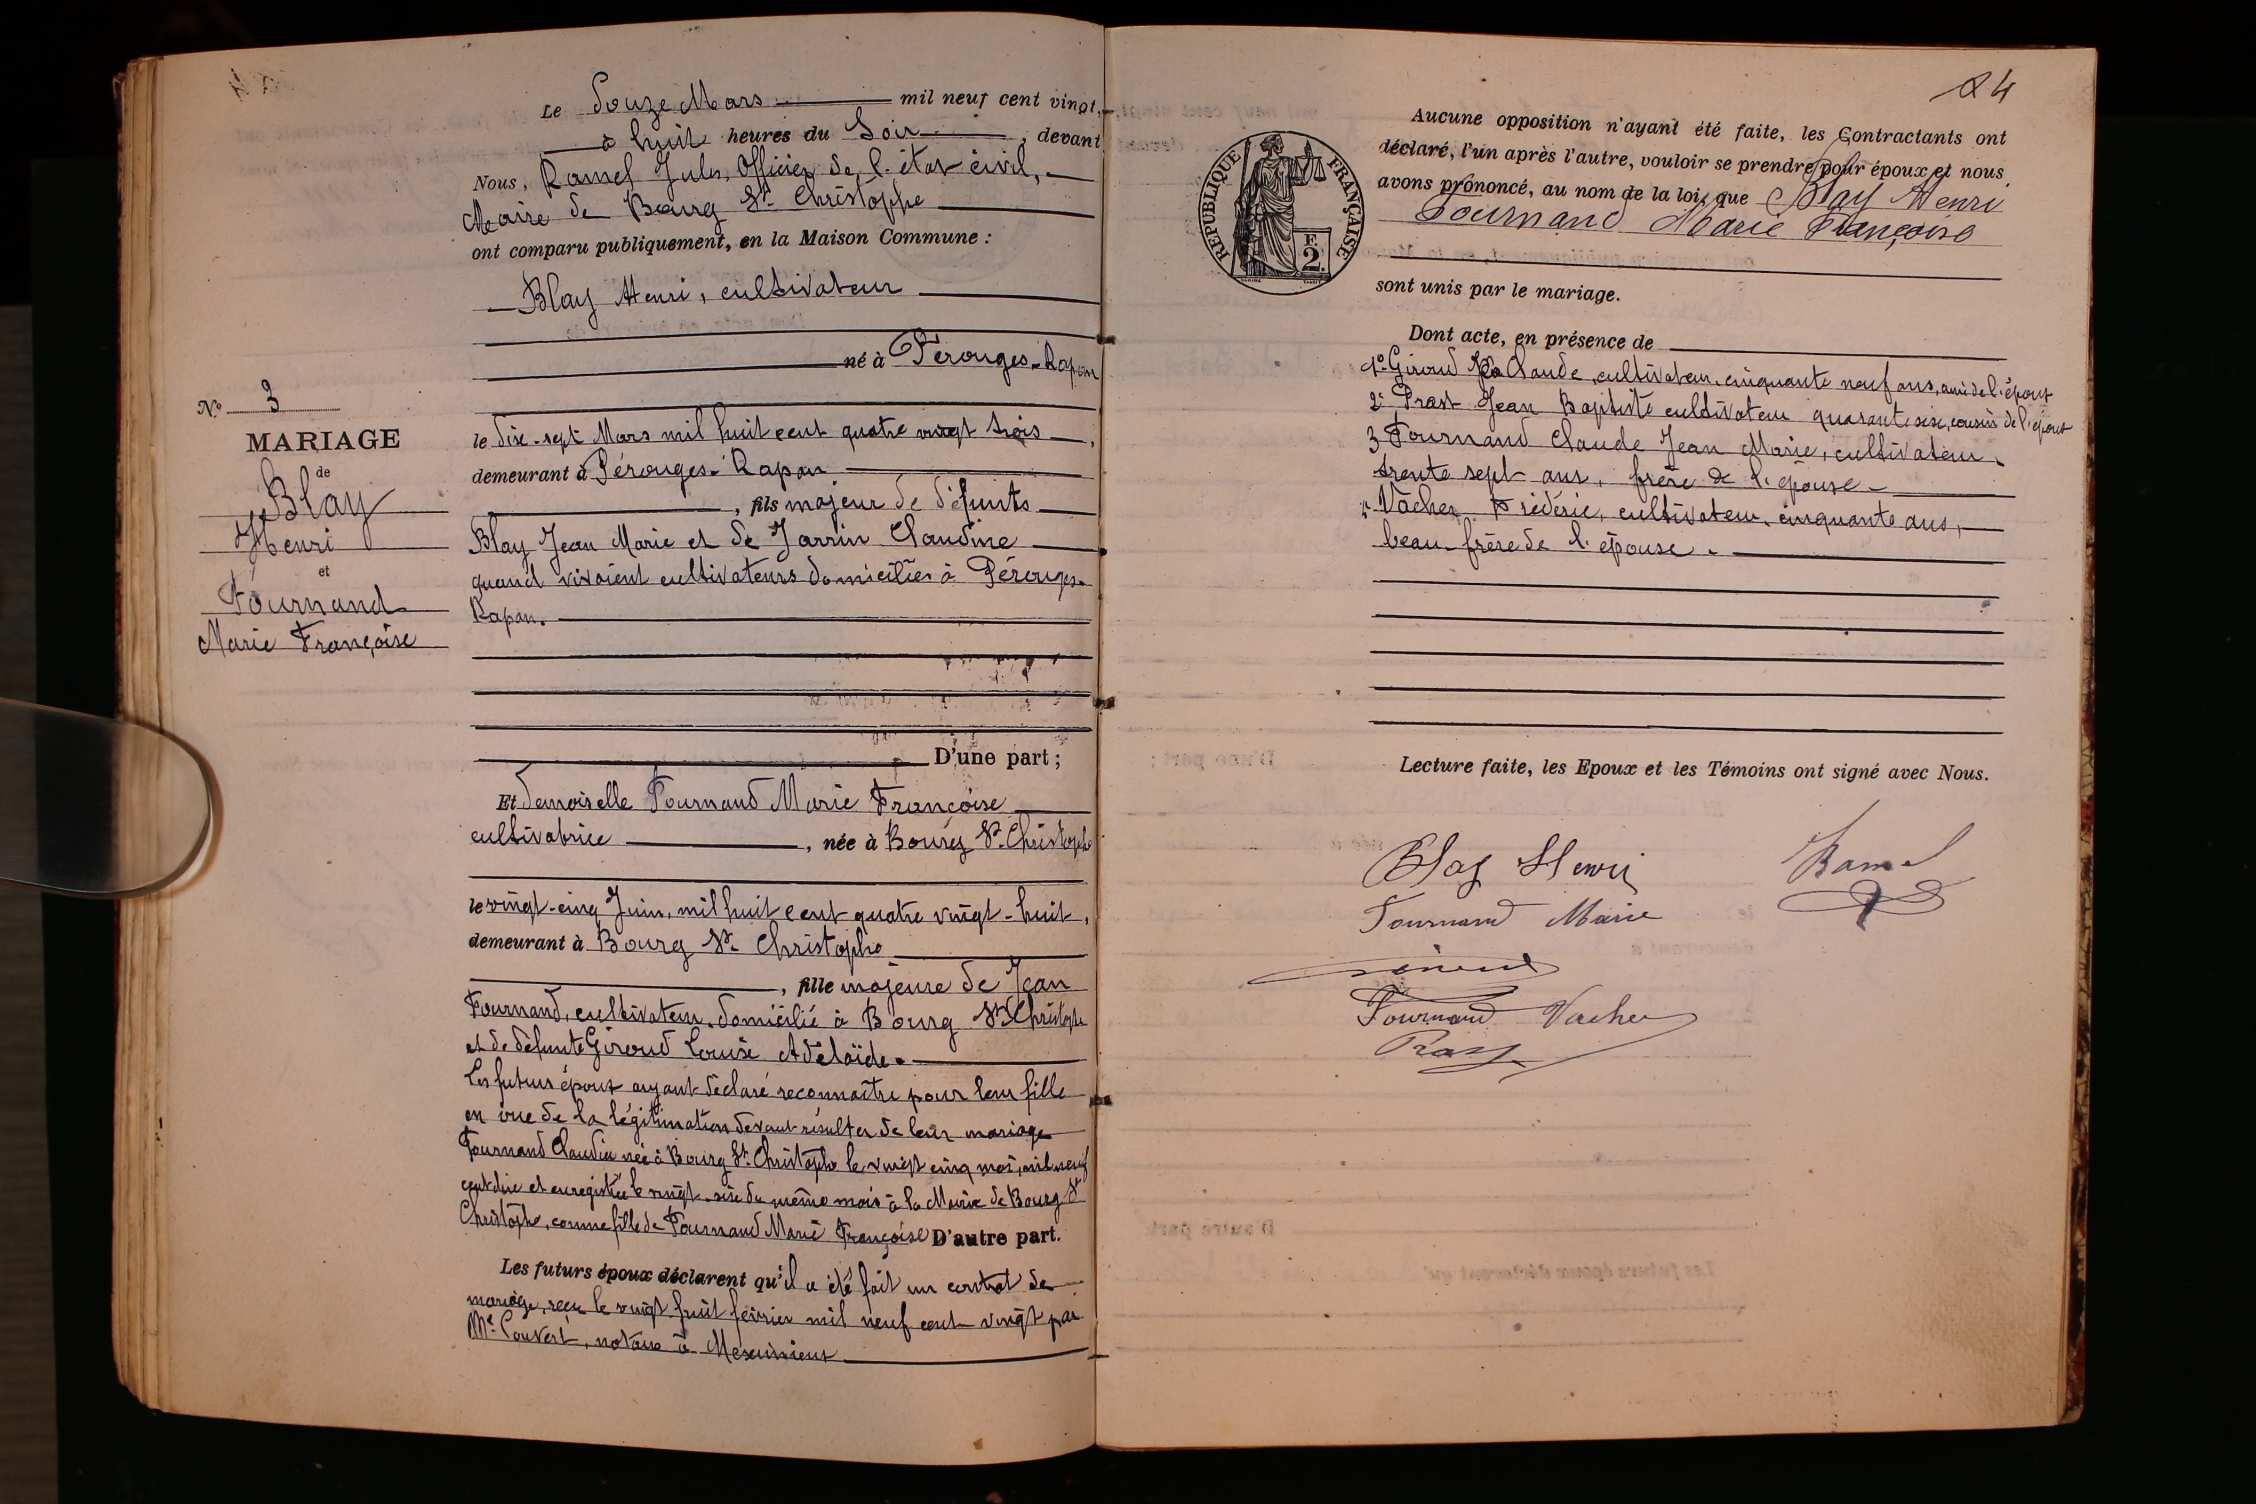 Le Douze Mars mil neuf cent vingt,
à huit heures du Soir, devant
Nous, Ramel Jules, Officier de l'état civil,
Maire de Bourg St Christophe
ont comparu publiquement, en la Maison Commune :
Blay Henri, cultivateur
né à Pérouges-Rapan
le dix-sept Mars mil huit cent quatre vingt trois,
demeurant à Pérouges-Rapan
, fils majeur de défunts
Blay Jean Marie et de Jarrin Claudine
quand vivaient cultivateurs domiciliés à Pérouges-
Rapan.
D'une part ;
Et demoiselle Fournand Marie Françoise
cultivatrice, née à Bourg St Christophe
le vingt-cinq Juin, mil huit cent quatre vingt-huit,
demeurant à Bourg St Christophe
, fille majeure de Jean
Fournand, cultivateur, domicilié à Bourg St Christophe
et de défunte Giroud Louise Adélaïde.
Les futurs époux ayant déclaré reconnaître pour leur fille
en vue de la légitimation devant résulter de leur mariage
Fournand Claudia née à Bourg St Christophe le vingt cinq mai, mil neuf
cent dix et enregistrée le vingt-six du même mois à la Mairie de Bourg St
Christophe, comme fille de Fournand Marie Françoise D'autre part.
Les futurs époux déclarent qu'il a été fait un contrat de
mariage, reçu le vingt huit février mil neuf cent vingt par
Me Couvert, notaire à Meximieux
No 3
MARIAGE
de
Blay
Henri
et
Fournand
Marie Françoise
24
RÉPUBLIQUE FRANÇAISE
F
2
Aucune opposition n'ayant été faite, les Contractants ont
déclaré, l'un après l'autre, vouloir se prendre pour époux et nous
avons prononcé, au nom de la loi, que Blay Henri
Fournand Marie Françoise
sont unis par le mariage.
Dont acte, en présence de
1o Giroud Claude, cultivateur, cinquante neuf ans, ami de l'époux
2o Prast Jean Baptiste cultivateur quarante six, cousin de l'époux
3 Fournand Claude Jean Marie, cultivateur,
trente sept ans, frère de l'épouse
4o Vacher Frédéric, cultivateur, cinquante ans,
beau-frère de l'épouse.
Lecture faite, les Epoux et les Témoins ont signé avec Nous.
Blay Henri
Ramel
Fournand Marie
Giroud
Fournand Vacher